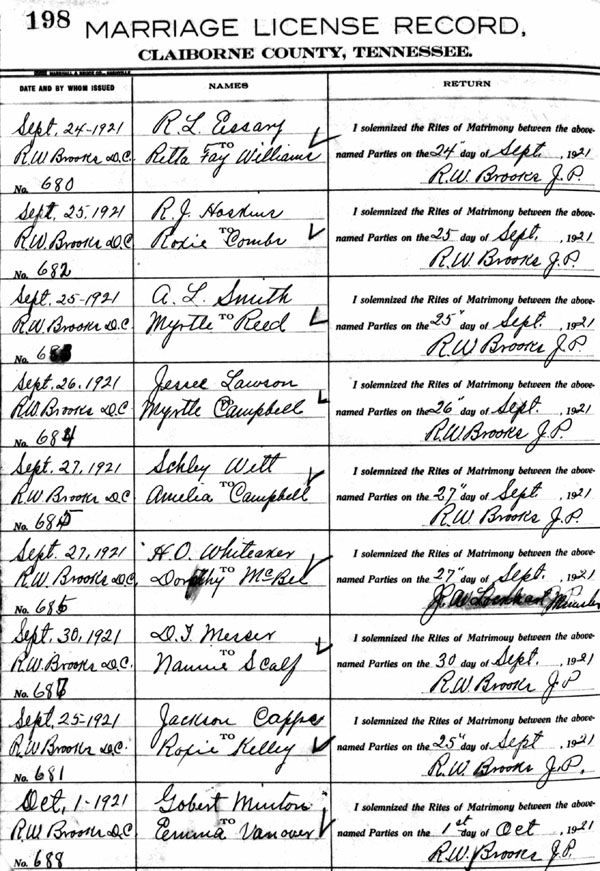 198 MARRIAGE LICENSE RECORD,
CLAIBORNE COUNTY, TENNESSEE.
DATE AND BY WHOM ISSUED NAMES RETURN
Sept. 24-1921 R. L. Essary I solemnized the Rites of Matrimony between the above-
R.W. Brooks D.C. Retta Fay TO Williams named Parties on the 24" day of Sept. , 1921
No. 680 R.W. Brooks J.P.
Sept. 25, 1921 R. J. Hoskins I solemnized the Rites of Matrimony between the above-
R.W. Brooks D.C. Roxie TO Combs named Parties on the 25 day of Sept. , 1921
No. 682 R.W. Brooks J.P.
Sept. 25-1921 A. L. Smith I solemnized the Rites of Matrimony between the above-
R.W. Brooks D.C. Myrtle TO Reed named Parties on the 25" day of Sept. , 1921
No. R.W. Brooks J.P.
Sept. 26, 1921 Jessee Lawson I solemnized the Rites of Matrimony between the above-
R.W. Brooks D.C. Myrtle TO Campbell named Parties on the 26" day of Sept. , 1921
No. 684 R.W. Brooks J.P.
Sept. 27, 1921 Schley Witt I solemnized the Rites of Matrimony between the above-
R.W. Brooks D.C. Amelia TO Campbell named Parties on the 27" day of Sept , 1921
No. 685 R.W. Brooks J.P.
Sept. 27, 1921 H.O. Whiteaker I solemnized the Rites of Matrimony between the above-
R.W. Brooks D.C. Dorothy TO McBee named Parties on the 27" day of Sept. , 1921
No. J.W. Lockhart Minister
Sept. 30, 1921 D.T. Messer I solemnized the Rites of Matrimony between the above-
R.W. Brooks D.C. Nannie TO Scalf named Parties on the 30 day of Sept. , 1921
No. 687 R.W. Brooks J.P.
Sept. 25-1921 Jackson Capps I solemnized the Rites of Matrimony between the above-
R.W. Brooks D.C. Roxie TO Kelley named Parties on the 25" day of Sept , 1921
No. 681 R.W. Brooks J.P.
Oct, 1-1921 Gobert Minton I solemnized the Rites of Matrimony between the above-
R.W. Brooks D.C. Emma TO Vanover named Parties on the 1st day of Oct , 1921
No. 688 R.W. Brooks J.P.